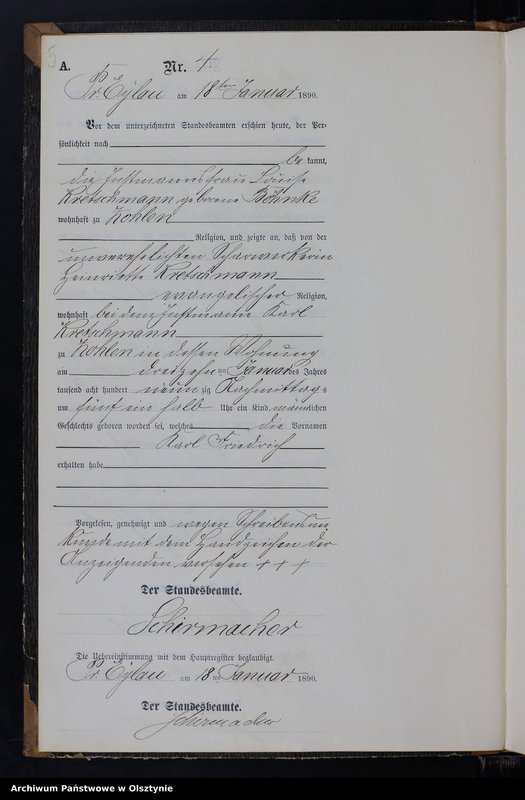 5
A.
Nr. 4.
Pr. Eylau am 18ten Januar 1890.
Vor dem unterzeichneten Standesbeamten erschien heute, der Per-
sönlichkeit nach
be kannt,
die Instmannsfrau Louise
Kretschmann geborene Böhnke
wohnhaft zu Zohlen
Religion, und zeigte an, daß von der
unverehelichten Scharwerkerin
Heinriette Kretschmann
evangelischer Religion,
wohnhaft bei dem Instmann Karl
Kretschmann
zu Zohlen in dessen Wohnung
am dreizehn ten Januar des Jahres
tausend acht hundert neun zig Nachmittags
um fünf ein halb Uhr ein Kind männlichen
Geschlechts geboren worden sei, welches die Vornamen
Karl Friedrich
erhalten habe
Vorgelesen, genehmigt und wegen Schreibensun
kunde mit dem Handzeichen der
Anzeigenden versehen + + +
Der Standesbeamte.
Schirmacher
Die Uebereinstimmung mit dem Hauptregister beglaubigt.
Pr. Eylau am 18 ten Januar 1890.
Der Standesbeamte.
Schirmacher
Archiwum Państwowe w Olsztynie